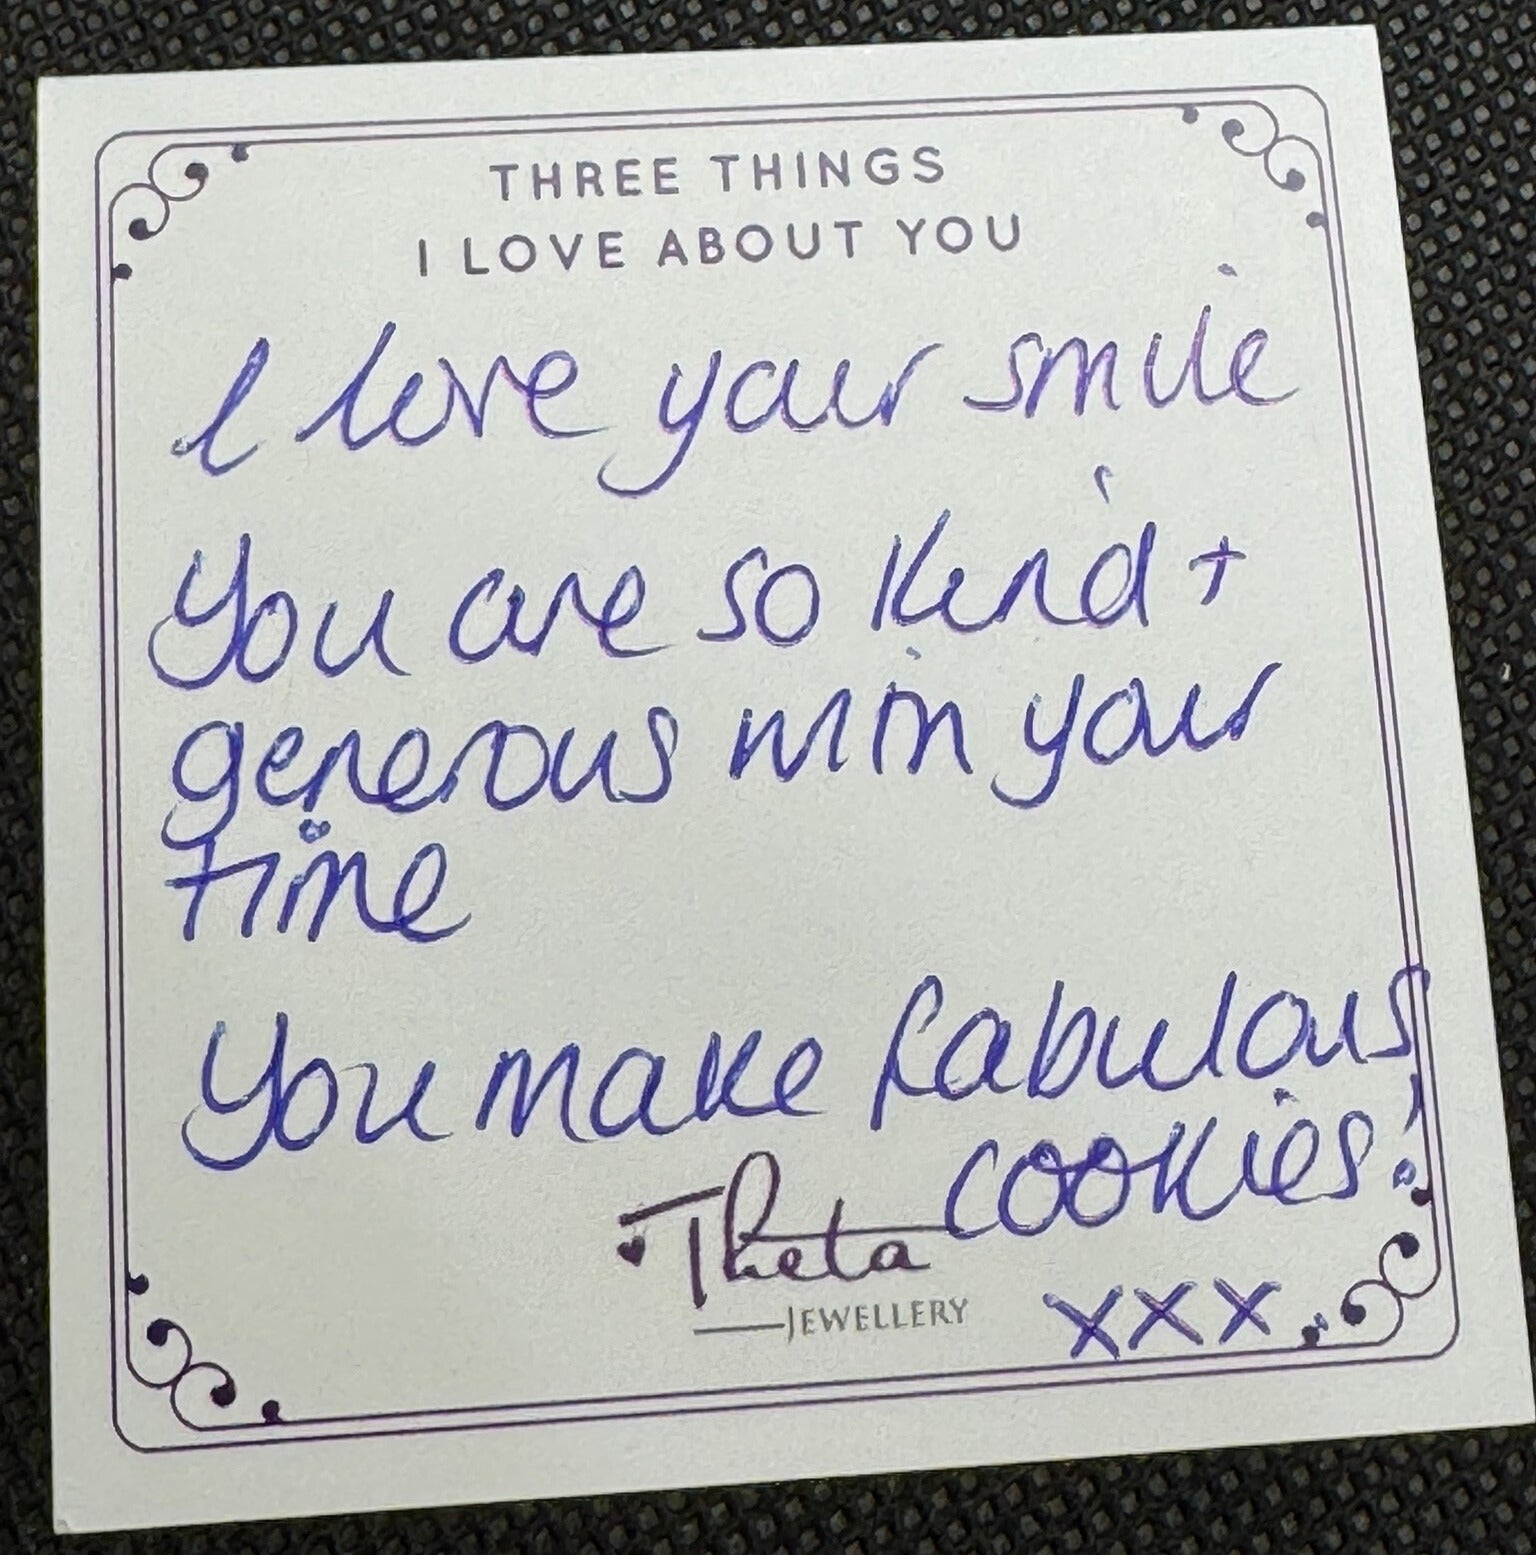 THREE THINGS
I LOVE ABOUT YOU
I love your smile
You are so kind +
generous with your
time
You make fabulous
cookies!
Theta
JEWELLERY
xxx